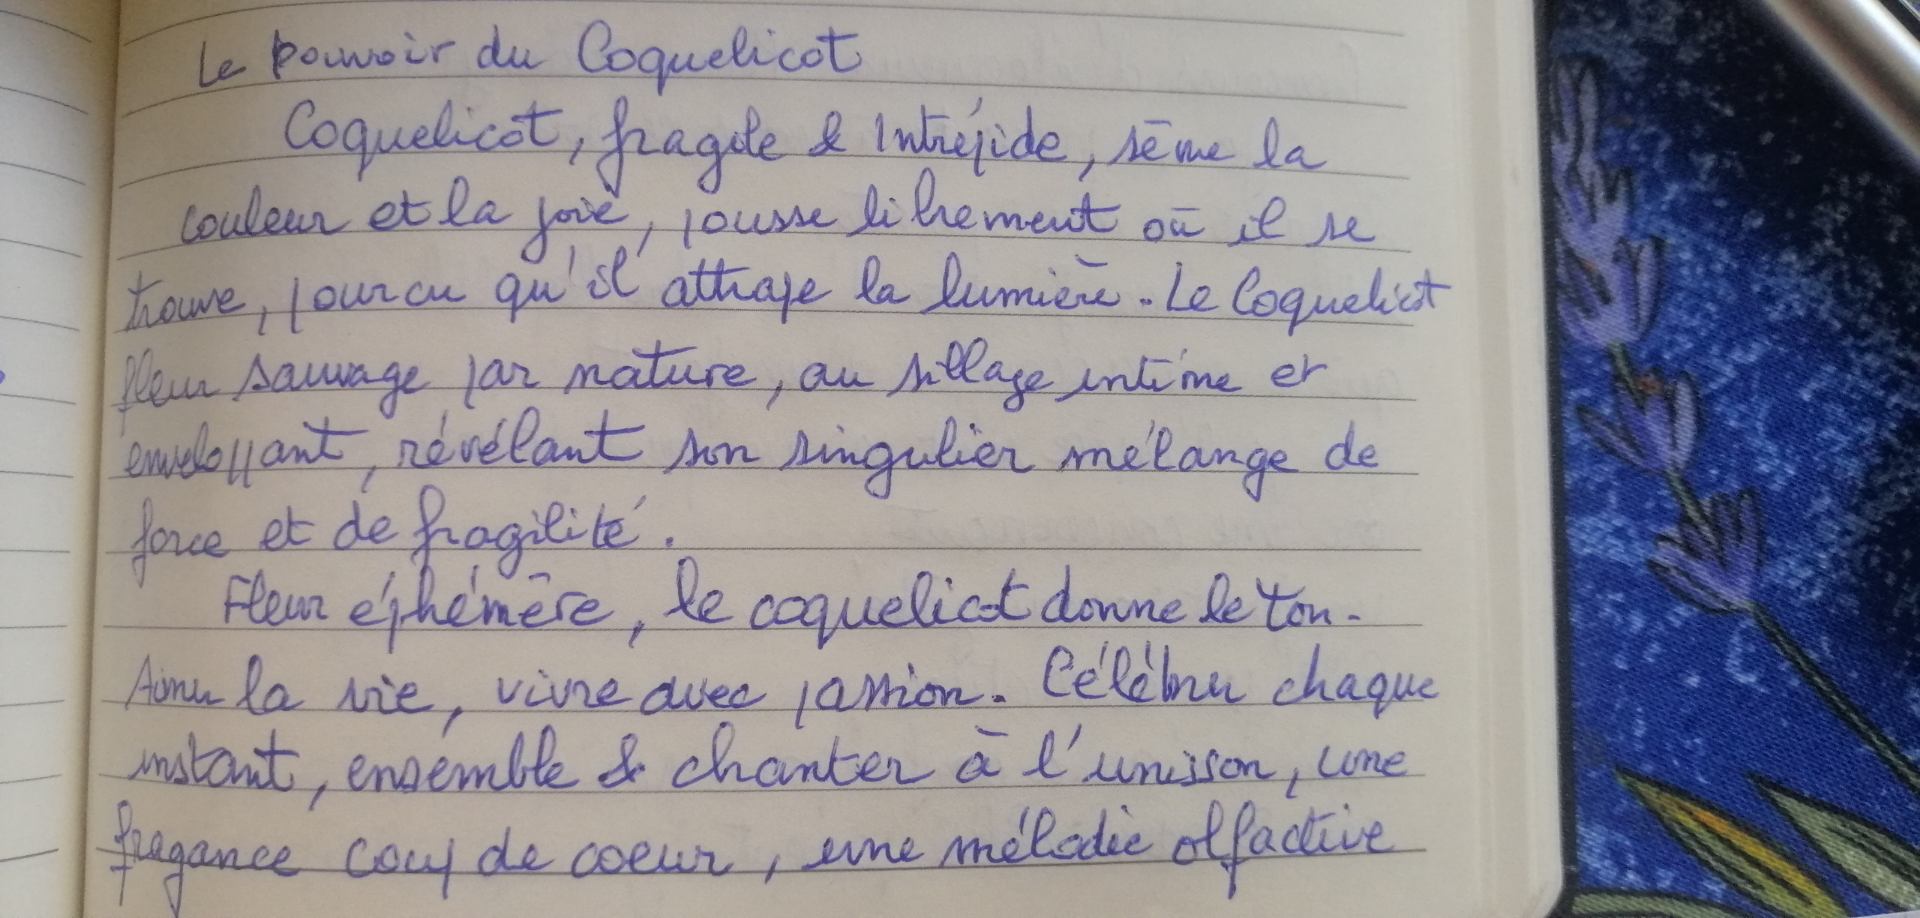 Le pouvoir du Coquelicot
Coquelicot, fragile & Intrépide, sème la
couleur et la joie, pousse librement où il se
trouve, pourvu qu'il attrape la lumière. Le Coquelicot
fleur sauvage par nature, au sillage intime et
enveloppant, révélant son singulier mélange de
force et de fragilité.
Fleur éphémère, le coquelicot donne le ton.
Aimer la vie, vivre avec passion. Célébrer chaque
instant, ensemble & chanter à l'unisson, une
fragance coup de coeur, une mélodie olfactive